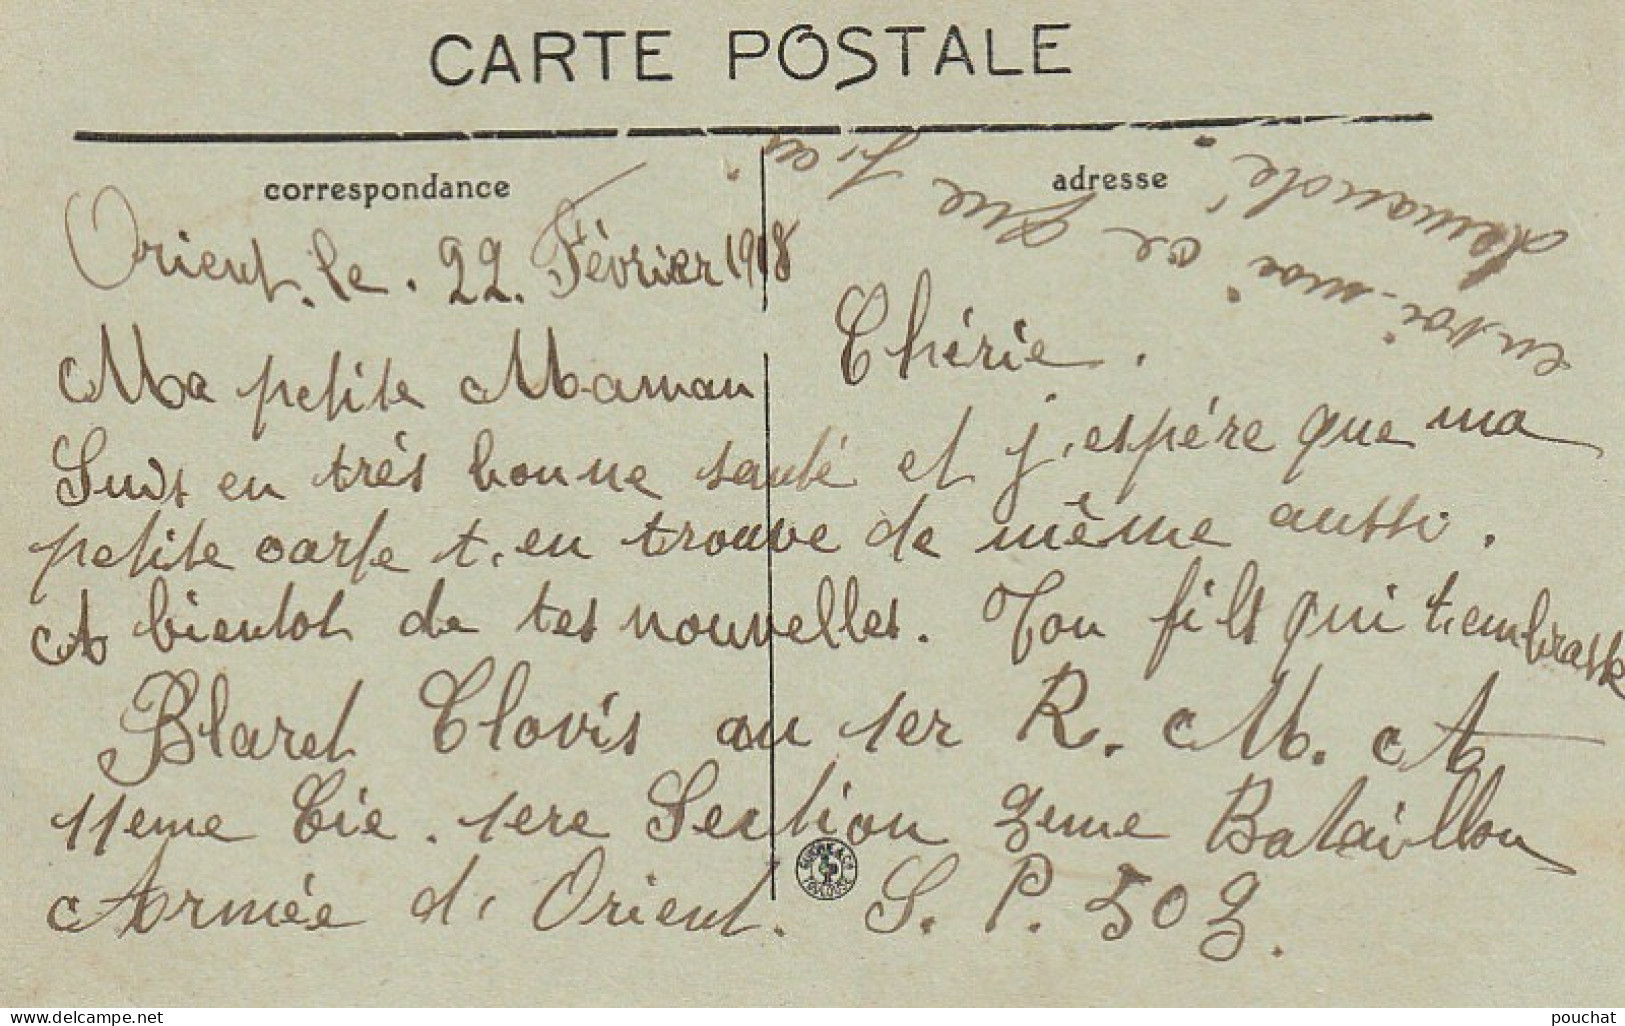 CARTE POSTALE
correspondance
adresse
Orient. le. 22. Février 1918
Ma petite Maman Chérie.
Suis en très bonne santé et j'espére que ma
petite carte t'en trouve de même aussi.
A bientot de tes nouvelles. Ton fils qui t'embrasse
Blaret Clovis au 1er R. M. A
11eme Cie. 1ere Section 3eme Bataillon
Armée d'Orient. S. P. 503.
envoi-moi ce que j'ai
demandé.
TOULOUSE
delcampe.net
pouchat